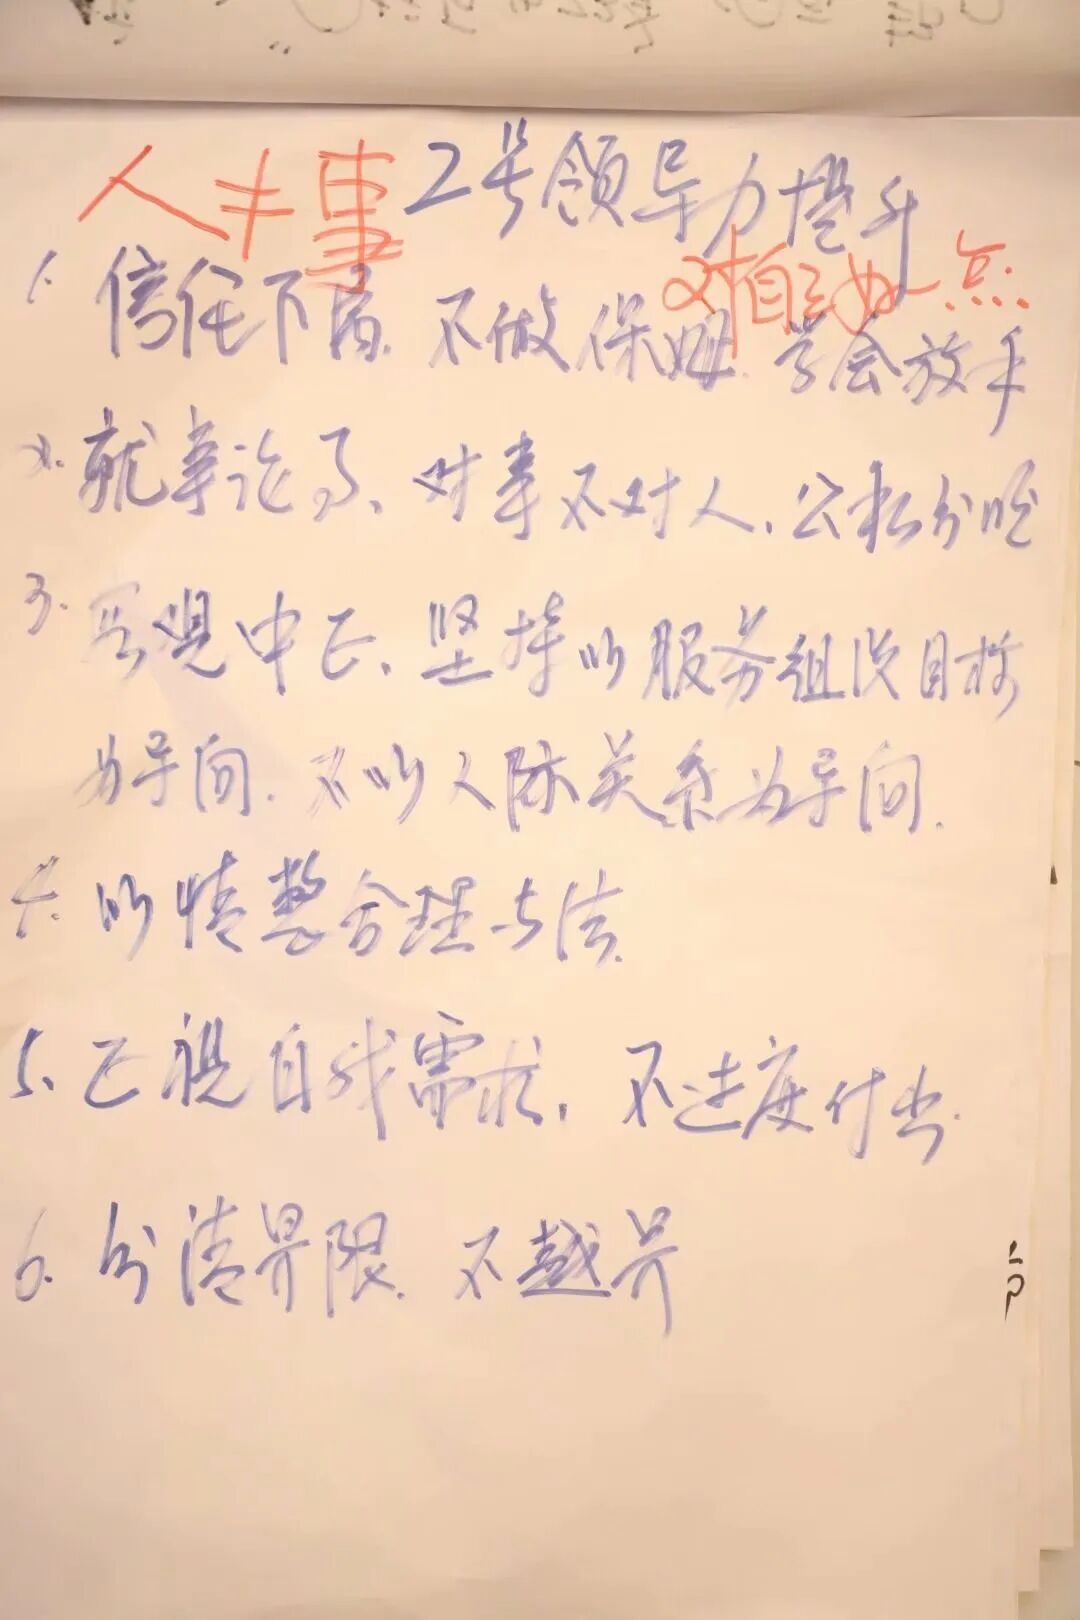 人≠事 2号领导力提升
对自己好一点.
1. 信任下属. 不做保姆. 学会放手
2. 就事论事、对事不对人、公私分明
3. 客观中正、坚持以服务组织目标
为导向. 不以人际关系为导向.
4. 以情整合理与法.
5. 正视自我需求, 不过度付出.
6. 分清界限. 不越界